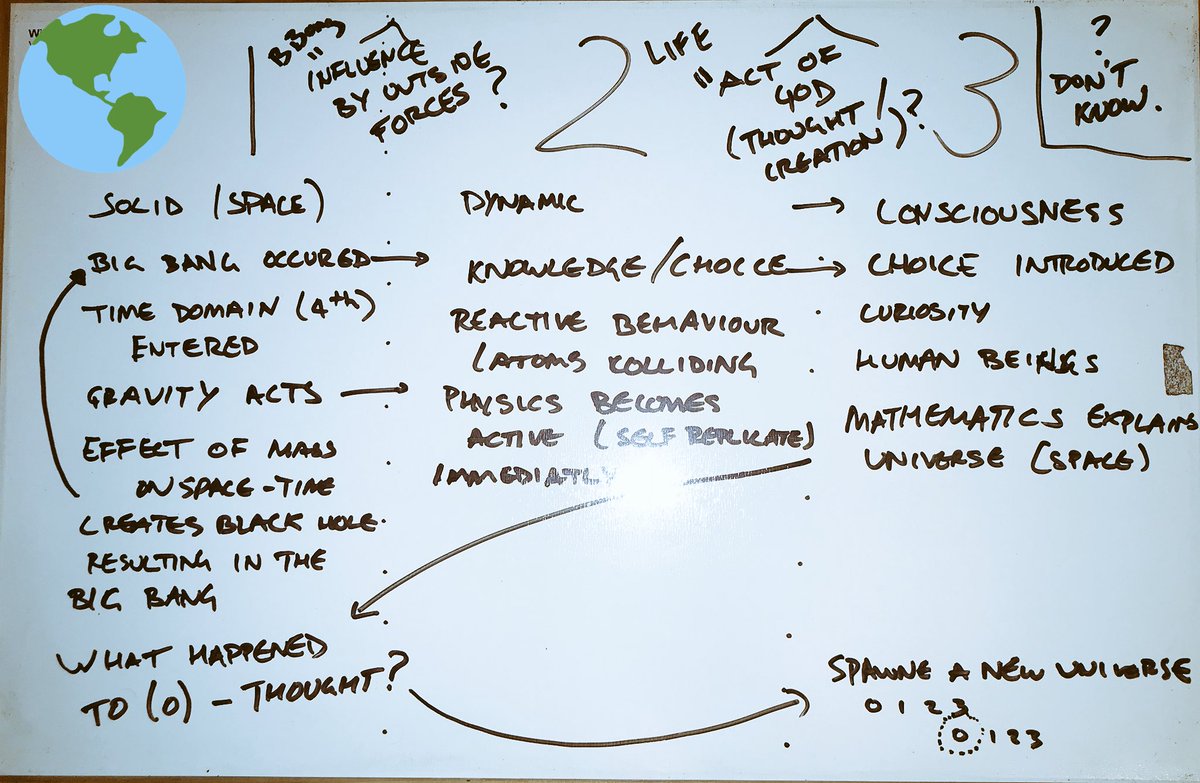 1
B BANG
"
INFLUENCE
BY OUTSIDE
FORCES?
2
LIFE
"
ACT OF
GOD
(THOUGHT/
CREATION)?
3
?
DON'T
KNOW.
SOLID (SPACE)
BIG BANG OCCURED
TIME DOMAIN (4th)
ENTERED
GRAVITY ACTS
EFFECT OF MASS
ON SPACE-TIME
CREATES BLACK HOLE
RESULTING IN THE
BIG BANG
WHAT HAPPENED
TO (0) - THOUGHT?
DYNAMIC
KNOWLEDGE/CHOICE
REACTIVE BEHAVIOUR
(ATOMS COLLIDING
PHYSICS BECOMES
ACTIVE (SELF REPLICATE)
IMMEDIATLY
CONSCIOUSNESS
CHOICE INTRODUCED
CURIOSITY
HUMAN BEINGS
MATHEMATICS EXPLAINS
UNIVERSE (SPACE)
SPAWNE A NEW UNIVERSE
0 1 2 3
0 1 2 3